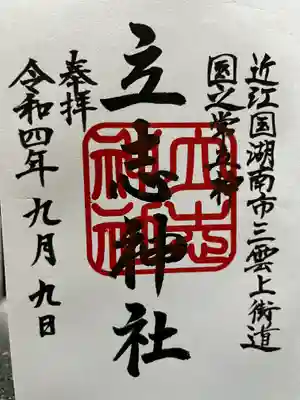 近江国湖南市三雲上街道
国之常立神
立志神社
奉拝
令和四年九月九日